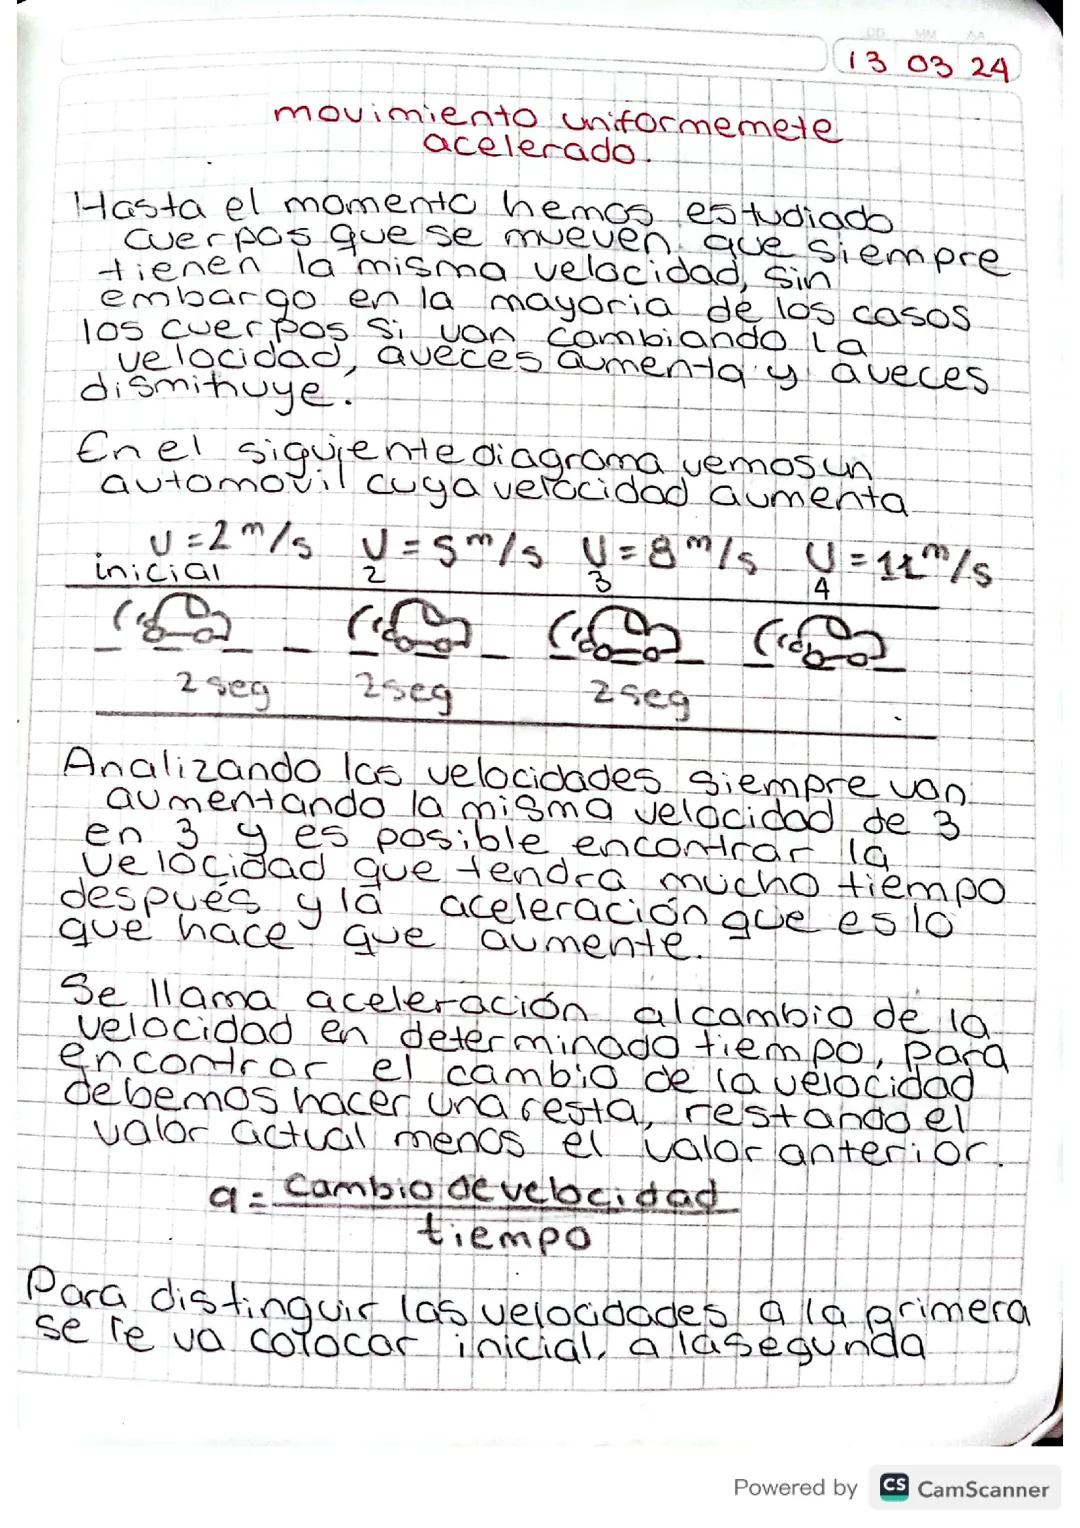 DD MM AA
13 03 24
movimiento uniformemete
acelerado.
Hasta el momento hemos estudiado
cuerpos que se mueven que siempre
tienen la misma velocidad, sin
embargo en la mayoria de los casos
los cuerpos si van cambiando la
velocidad, aveces aumenta y aveces
dismihuye.
En el siguiente diagrama vemos un
automovil cuya velocidad aumenta
V=2 m/s V=5 m/s V=8 m/s V=11 m/s
inicial 2 3 4
2 seg 2seg 2seg
Analizando las velocidades siempre van
aumentando la misma velocidad de 3
en 3 y es posible encontrar la
velocidad que tendra mucho tiempo
después y la aceleración que es lo
que hace que aumente.
Se llama aceleración al cambio de la
velocidad en determinado tiempo, para
encontrar el cambio de la velocidad
debemos hacer una resta, restando el
valor actual menos el valor anterior.
a = cambio de velocidad
tiempo
Para distinguir las velocidades a la primera
se le va colocar inicial, a la segunda
Powered by CS CamScanner